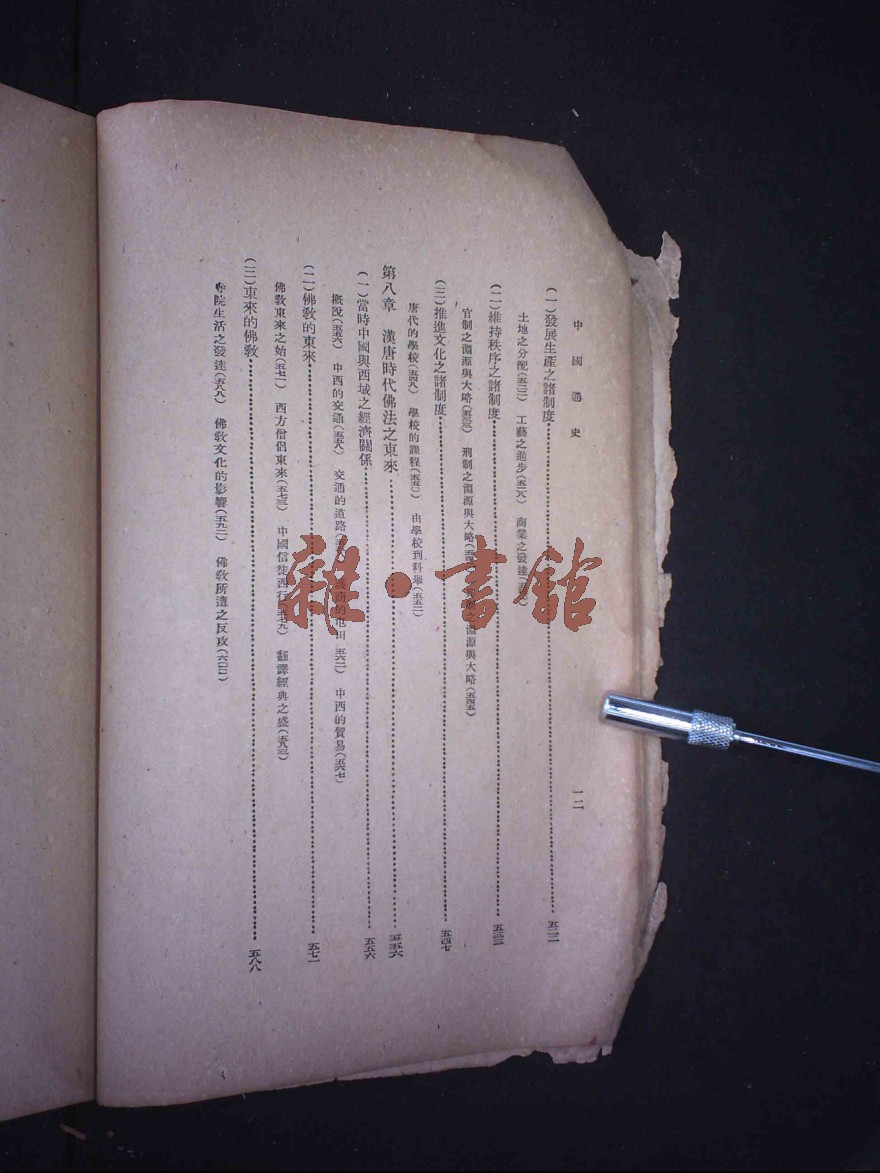 中國通史
一二
(一)發展生產之諸制度 五二二
土地之分配(五二二) 工藝之進步(五二八) 商業之發達
(二)維持秩序之諸制度 五三三
官制之淵源與大略(五三三) 刑制之淵源與大略 之淵源與大略(五四五)
(三)推進文化之諸制度 五四七
唐代的學校(五四八) 學校的課程(五五〇) 由學校到科舉(五五二)
第八章 漢唐時代佛法之東來 五五六
(一)當時中國與西域之經濟關係 五五六
概說(五五六) 中西的交通(五五八) 交通的道路 的屯田(五六二) 中西的貿易(五六七)
(二)佛敎的東來 五七一
佛敎東來之始(五七一) 西方僧侶東來(五七三) 中國信徒西行(五七九) 翻譯經典之盛
(三)東來的佛敎 五八八
寺院生活之發達(五八八) 佛敎文化的影響(五九二) 佛敎所遭之反攻(六〇〇)
雜·書館